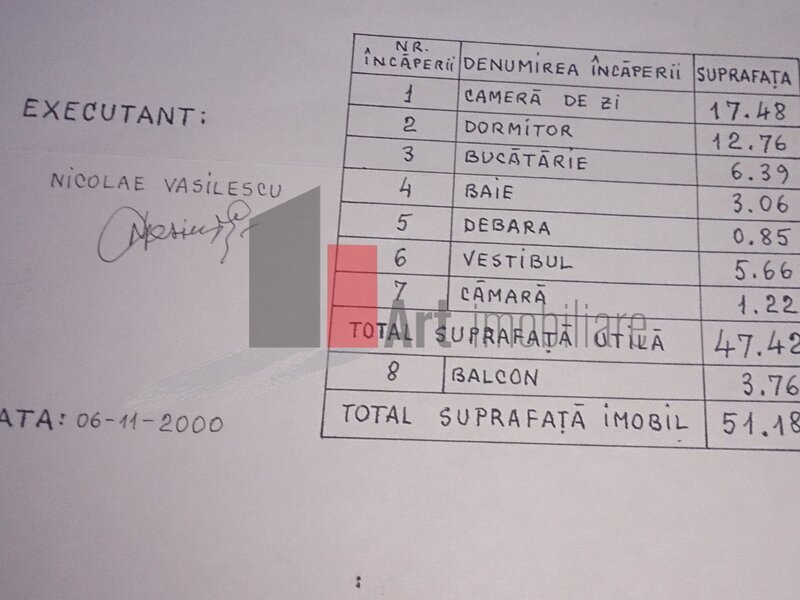 EXECUTANT:
NICOLAE VASILESCU
ATA: 06-11-2000
NR. ÎNCĂPERII DENUMIREA ÎNCĂPERII SUPRAFAȚA
1 CAMERĂ DE ZI 17.48
2 DORMITOR 12.76
3 BUCĂTĂRIE 6.39
4 BAIE 3.06
5 DEBARA 0.85
6 VESTIBUL 5.66
7 CĂMARĂ 1.22
TOTAL SUPRAFAȚĂ UTILĂ 47.42
8 BALCON 3.76
TOTAL SUPRAFAȚĂ IMOBIL 51.18
Art imobiliare